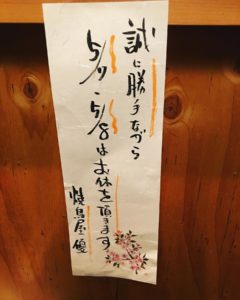 誠に勝手ながら
5/7、5/8はお休みを頂きます
焼鳥屋 優